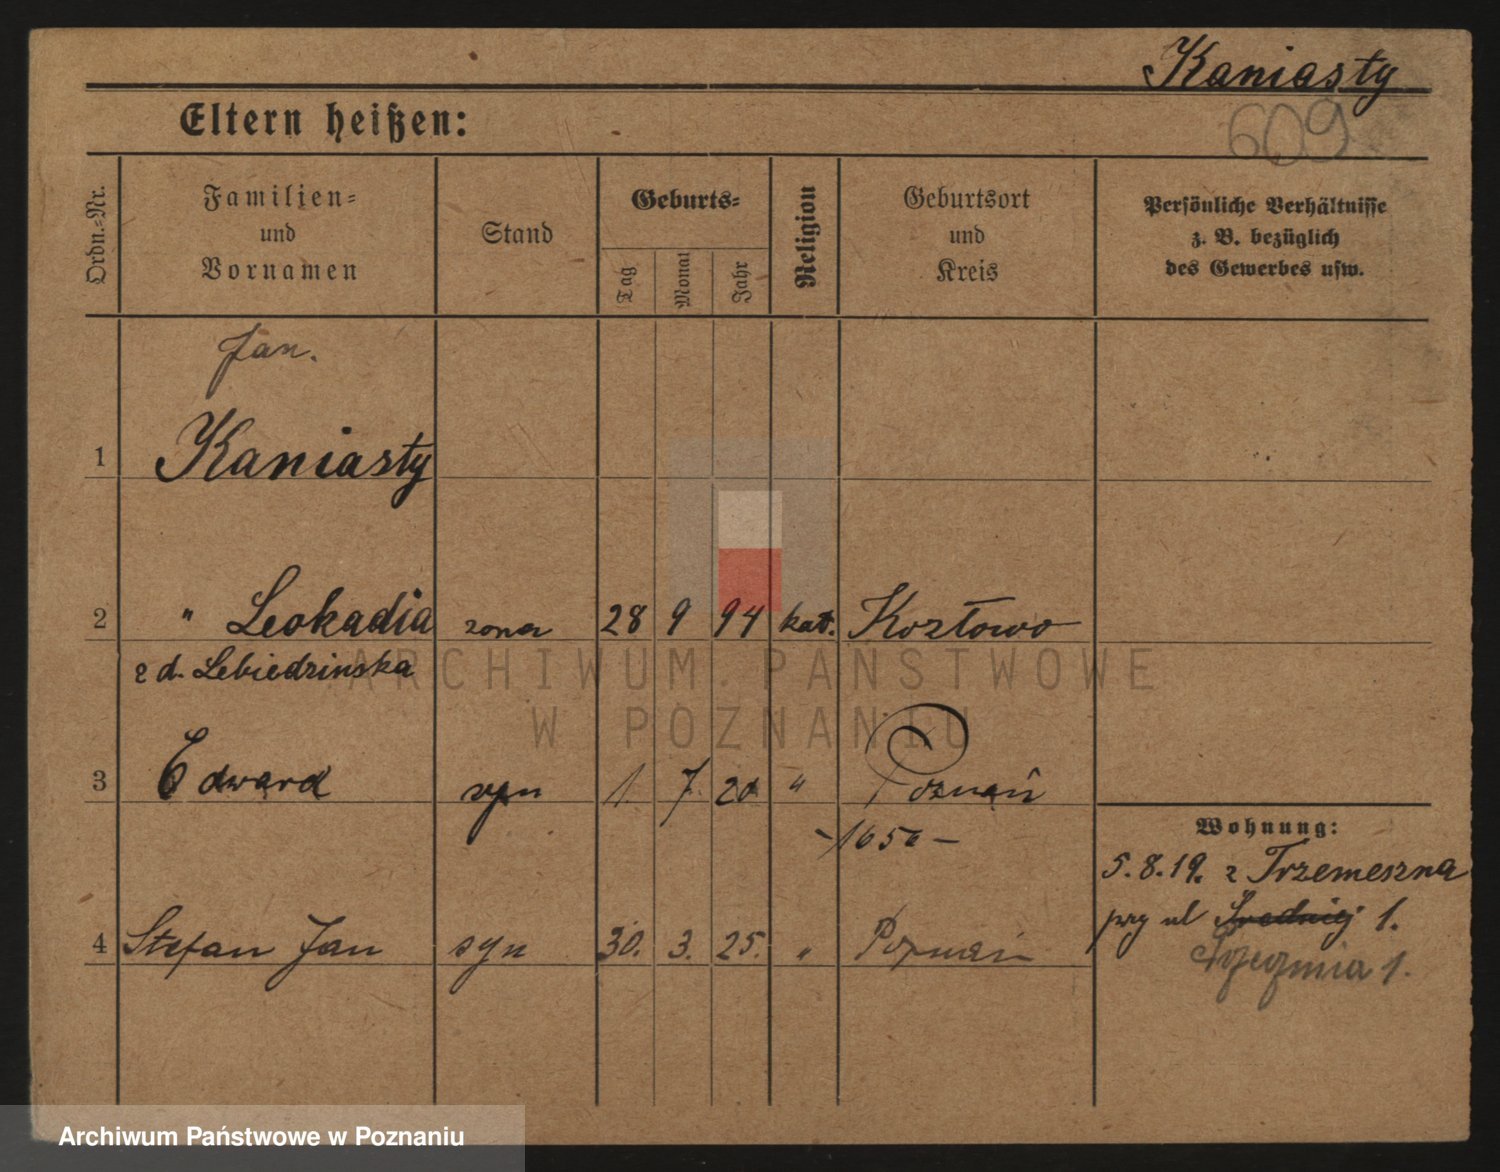 Kaniasty
Eltern heißen:
609
Ordn.-Nr.
Familien- und Vornamen
Stand
Geburts-
Tag
Monat
Jahr
Religion
Geburtsort und Kreis
Persönliche Verhältnisse z. B. bezüglich des Gewerbes usw.
Jan.
1 Kaniasty
2 " Leokadia żona 28 9 94 kat. Kozłowo
z d. Lebiedzinska
3 Edward syn 1. 7. 20 " Poznań
-1650-
Wohnung:
5.8.19. z Trzemeszna
przy ul Średniej 1.
1.
4 Stefan Jan syn 30. 3. 25. " Poznań
ARCHIWUM PAŃSTWOWE
W POZNANIU
Archiwum Państwowe w Poznaniu